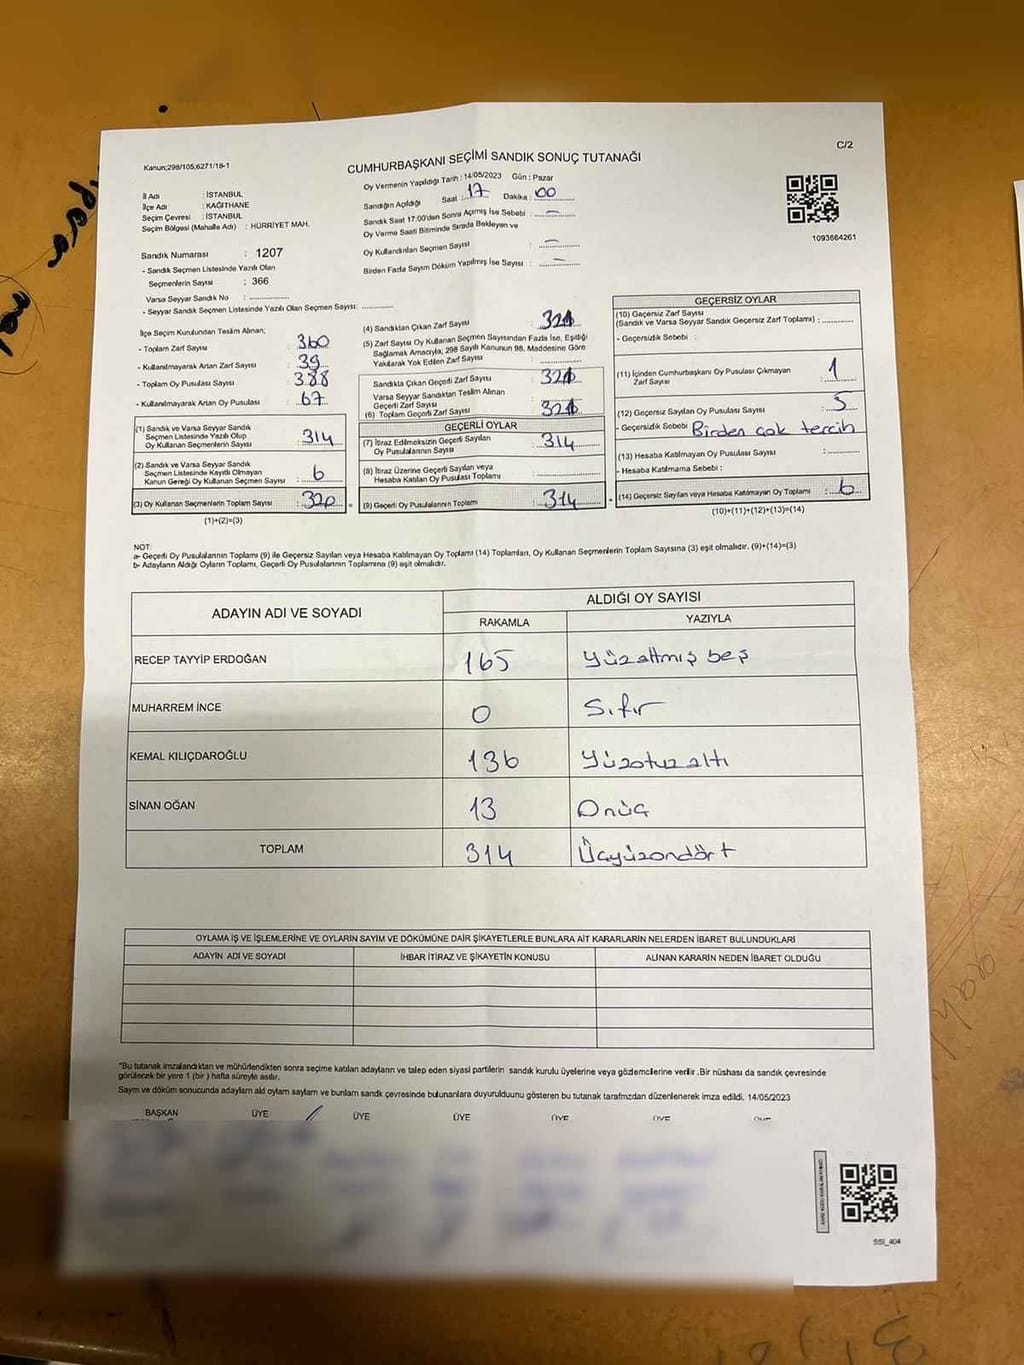 C/2
Kanun;298/105;6271/18-1
CUMHURBAŞKANI SEÇİMİ SANDIK SONUÇ TUTANAĞI
İl Adı : İSTANBUL
İlçe Adı : KAĞITHANE
Seçim Çevresi : İSTANBUL
Seçim Bölgesi (Mahalle Adı) : HÜRRİYET MAH.
Sandık Numarası : 1207
- Sandık Seçmen Listesinde Yazılı Olan
Seçmenlerin Sayısı : 366
Varsa Seyyar Sandık No : ............
- Seyyar Sandık Seçmen Listesinde Yazılı Olan Seçmen Sayısı: ............
Oy Vermenin Yapıldığı Tarih : 14/05/2023 Gün : Pazar
Sandığın Açıldığı Saat : 17 Dakika : 00
Sandık Saat 17:00'den Sonra Açmış İse Sebebi : —
Oy Verme Saati Bitiminde Sırada Bekleyen ve
Oy Kullandırılan Seçmen Sayısı : —
Birden Fazla Sayım Döküm Yapılmış İse Sayısı : —
1093664261
İlçe Seçim Kurulundan Teslim Alınan;
- Toplam Zarf Sayısı : 360
- Kullanılmayarak Artan Zarf Sayısı : 39
- Toplam Oy Pusulası Sayısı : 388
- Kullanılmayarak Artan Oy Pusulası : 67
(1) Sandık ve Varsa Seyyar Sandık
Seçmen Listesinde Yazılı Olup
Oy Kullanan Seçmenlerin Sayısı : 314
(2) Sandık ve Varsa Seyyar Sandık
Seçmen Listesinde Kayıtlı Olmayan
Kanun Gereği Oy Kullanan Seçmen Sayısı : 6
(3) Oy Kullanan Seçmenlerin Toplam Sayısı : 320
(1)+(2)=(3)
(4) Sandıktan Çıkan Zarf Sayısı :
(5) Zarf Sayısı Oy Kullanan Seçmen Sayısından Fazla İse, Eşitliği
Sağlamak Amacıyla; 298 Sayılı Kanunun 98. Maddesine Göre
Yakılarak Yok Edilen Zarf Sayısı : ............
Sandıkta Çıkan Geçerli Zarf Sayısı :
Varsa Seyyar Sandıktan Teslim Alınan
Geçerli Zarf Sayısı :
(6) Toplam Geçerli Zarf Sayısı :
GEÇERLİ OYLAR
(7) İtiraz Edilmeksizin Geçerli Sayılan
Oy Pusulalarının Sayısı : 314
(8) İtiraz Üzerine Geçerli Sayılan veya
Hesaba Katılan Oy Pusulası Toplamı : ............
(9) Geçerli Oy Pusulalarının Toplamı : 314
GEÇERSİZ OYLAR
(10) Geçersiz Zarf Sayısı
(Sandık ve Varsa Seyyar Sandık Geçersiz Zarf Toplamı) : ............
- Geçersizlik Sebebi :
(11) İçinden Cumhurbaşkanı Oy Pusulası Çıkmayan
Zarf Sayısı : 1
(12) Geçersiz Sayılan Oy Pusulası Sayısı : 5
- Geçersizlik Sebebi : Birden çok tercih
(13) Hesaba Katılmayan Oy Pusulası Sayısı : ............
- Hesaba Katılmama Sebebi :
(14) Geçersiz Sayılan veya Hesaba Katılmayan Oy Toplamı : 6
(10)+(11)+(12)+(13)=(14)
NOT:
a- Geçerli Oy Pusulalarının Toplamı (9) ile Geçersiz Sayılan veya Hesaba Katılmayan Oy Toplamı (14) Toplamları, Oy Kullanan Seçmenlerin Toplam Sayısına (3) eşit olmalıdır. (9)+(14)=(3)
b- Adayların Aldığı Oyların Toplamı, Geçerli Oy Pusulalarının Toplamına (9) eşit olmalıdır.
ADAYIN ADI VE SOYADI ALDIĞI OY SAYISI
RAKAMLA YAZIYLA
RECEP TAYYİP ERDOĞAN 165 Yüzaltmış beş
MUHARREM İNCE 0 Sıfır
KEMAL KILIÇDAROĞLU 136 Yüzotuzaltı
SİNAN OĞAN 13 Onüç
TOPLAM 314 Üçyüzondört
OYLAMA İŞ VE İŞLEMLERİNE VE OYLARIN SAYIM VE DÖKÜMÜNE DAİR ŞİKAYETLERLE BUNLARA AİT KARARLARIN NELERDEN İBARET BULUNDUKLARI
ADAYIN ADI VE SOYADI İHBAR İTİRAZ VE ŞİKAYETİN KONUSU ALINAN KARARIN NEDEN İBARET OLDUĞU
*Bu tutanak imzalandıktan ve mühürlendikten sonra seçime katılan adayların ve talep eden siyasi partilerin sandık kurulu üyelerine veya gözlemcilerine verilir. Bir nüshası da sandık çevresinde
görülecek bir yere 1 (bir) hafta süreyle asılır.
Sayım ve döküm sonucunda adayların aldı oyların sayılam ve bunların sandk çevresinde bulunanlara duyurulduunu gösteren bu tutanak tarafmızdan düzenlenerek imza edildi. 14/05/2023
BAŞKAN ÜYE ÜYE ÜYE ÜYE ÜYE ÜYE
SSI_404